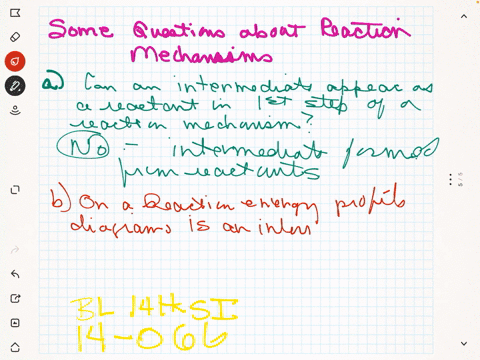 Some Questions about Reaction
Mechanisms
a) Can an intermediate appear as
a reactant in 1st step of a
reaction mechanism?
No - intermediate formed
from reactants
b) On a Reaction energy profile
diagrams is an inter
BL 14th SI
14-066
5/5